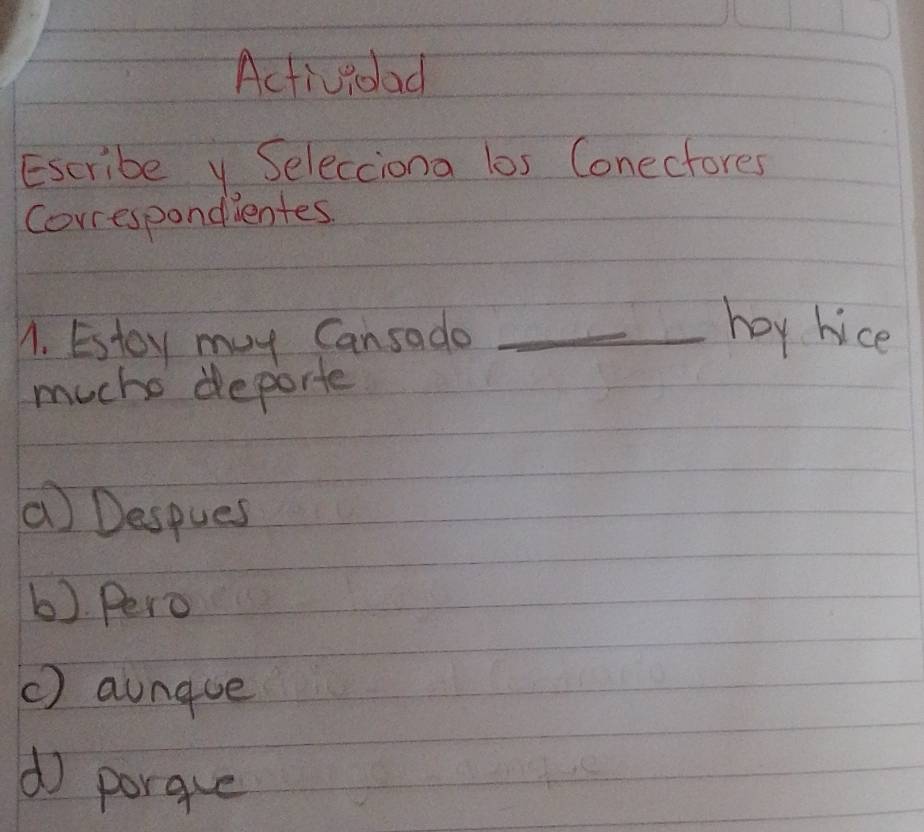 Actividad
Escribe y Selecciona los Conectores
Correspondientes.
1. Estoy muy Cansado ______ hoy hice
mucho deporte
a) Despues
b). Pero
c) aunque
d) porque